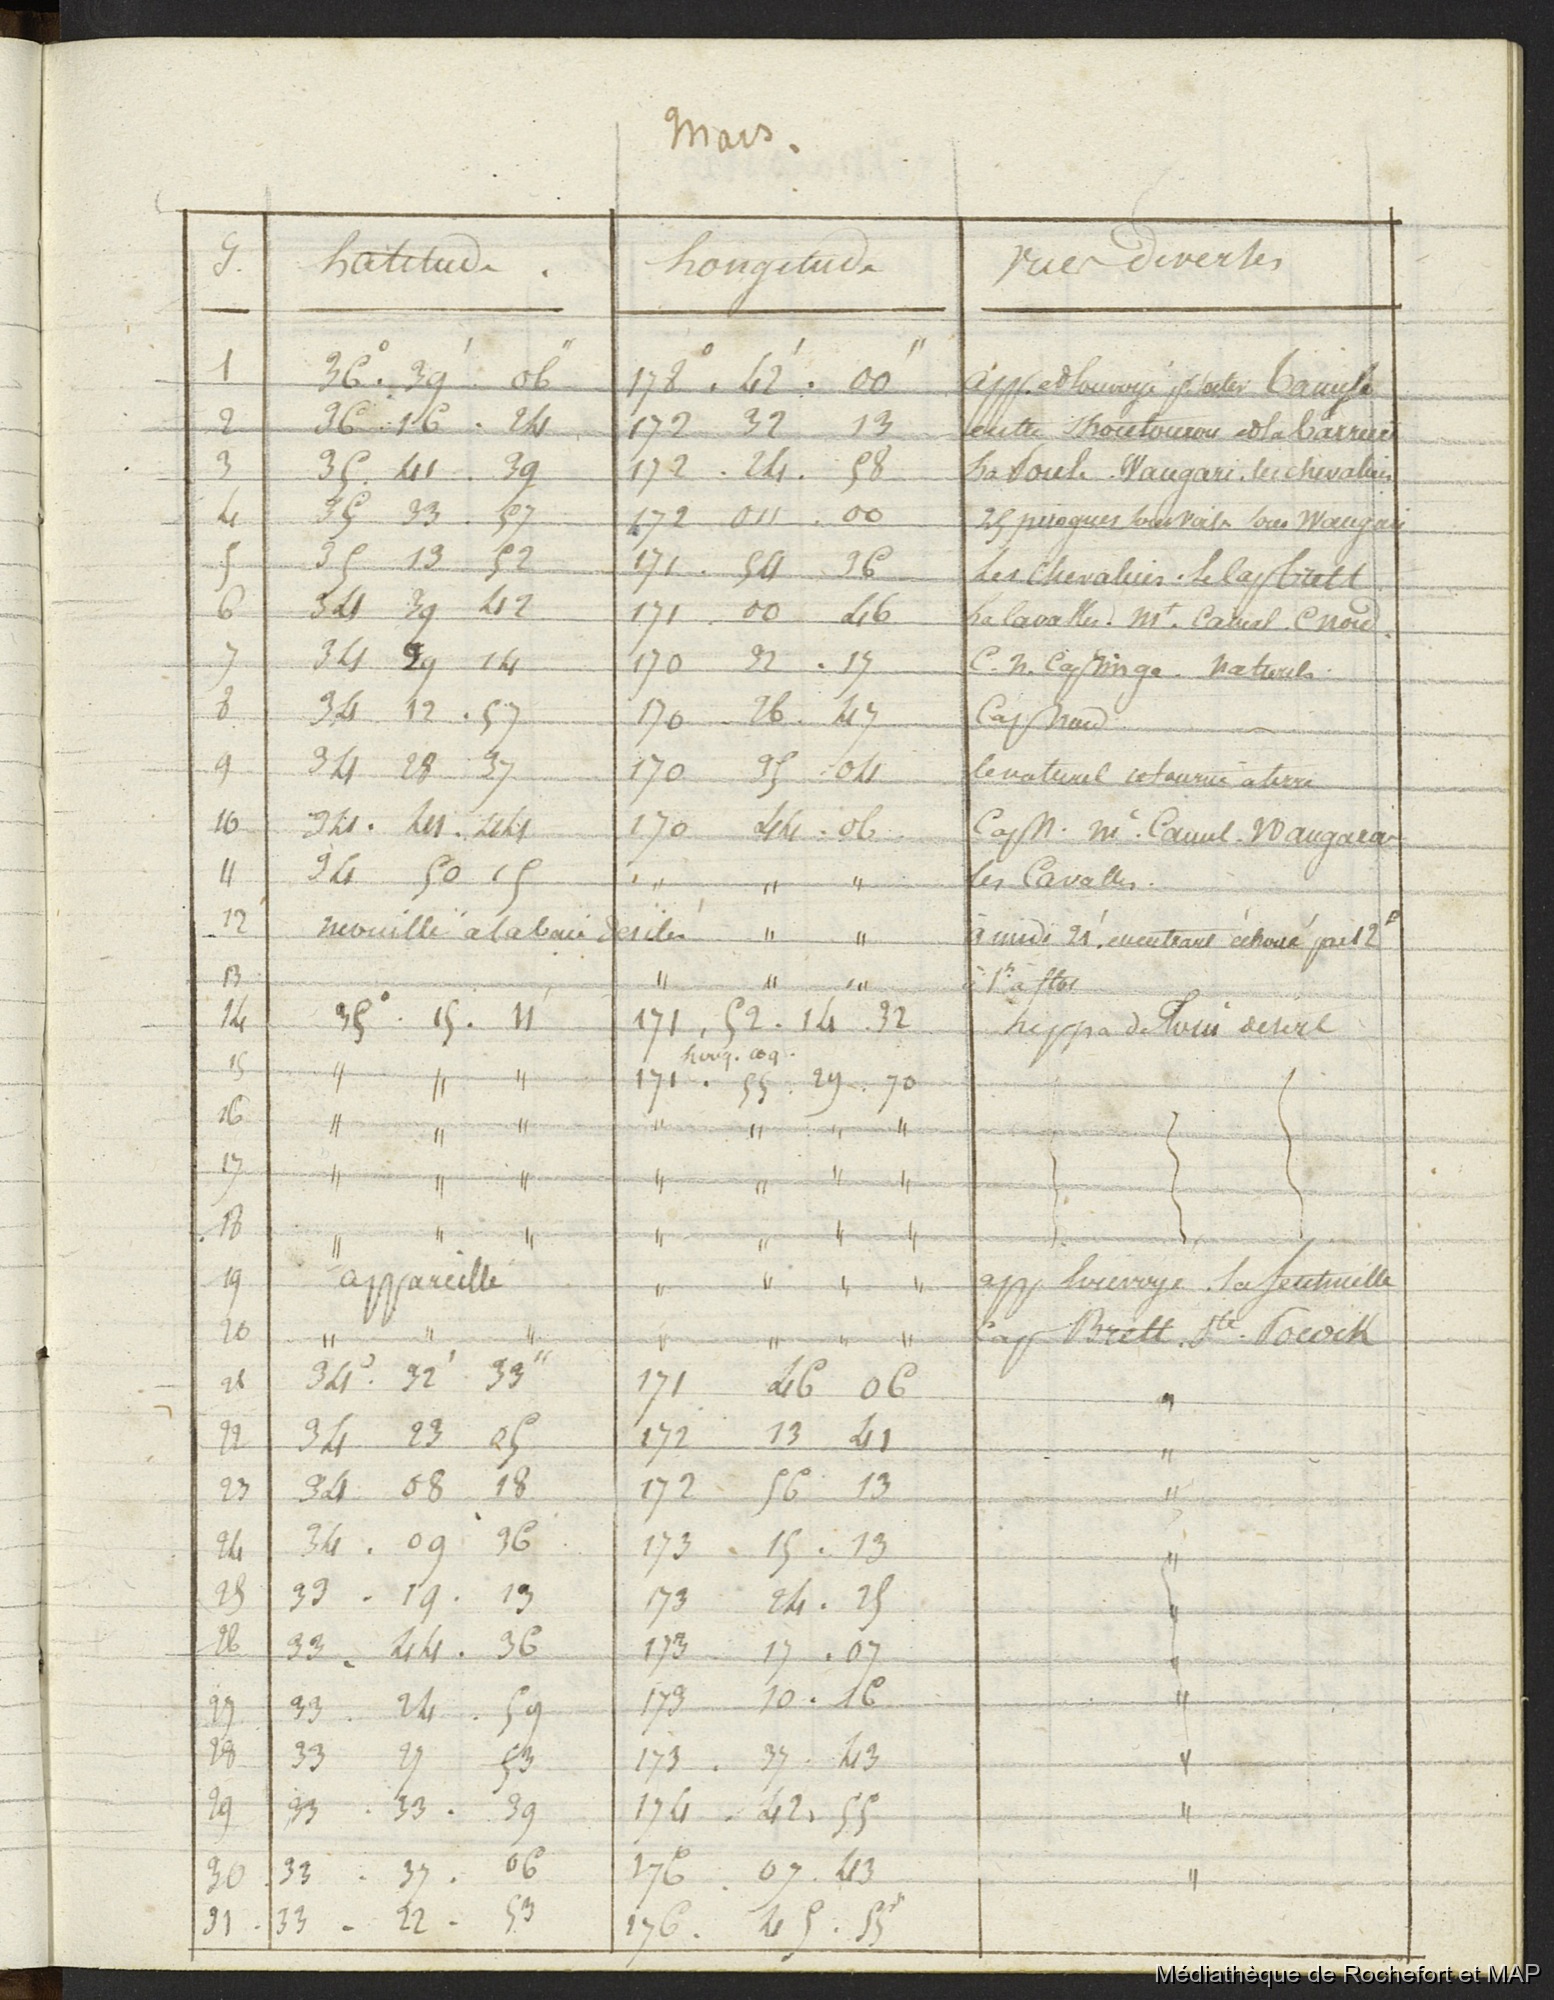 Mars.
J. Latitude. Longitude Vues diverses
1 36° . 39' 06" 178° . 42' . 00" app. et louvoyé
2 36 . 16 . 24 172 32 13 entre Shoutourou et la Barriere
3 35 . 41 . 39 172 . 24 . 58 La Poule . Wangari . les chevaliers
4 35 33 . 57 172 011 . 00 25 pirogues sous voile sous Wangari
5 35 13 52 171 . 54 36 Les Chevaliers . Le Cap Brett
6 34 39 42 171 . 00 46 La Cavalles . Mt. Camel . C nord .
7 34 39 14 170 32 . 17 C. N. Cap Ringo . Naturels .
8 34 12 . 57 170 . 26 . 47 Cap Nord
9 34 28 37 170 35 . 04 le naturel retourné a terre
10 34 . 41 . 44 170 44 . 06 Cap N . Mt. Camel . Wangaroa
11 34 50 15 " " " Les Cavalles .
12 mouillé à la baie des iles " " à midi 21', en entrant échoué par 12 P
13 " " " à 1h à flot
14 35° . 15 . 11' 171 . 52 . 14 . 32 hippa de
long.
15 " " " 171 . 55 . 29 . 70
16 " " " " " " "
17 " " " " " " "
18 " " " " " " "
19 appareillé " " " " app louvoyé . la sentinelle
20 " " " " " " " Cap Brett . Pte . Pocock
21 34° . 32' 33" 171 46 06 "
22 34 23 05 172 13 41 "
23 34 08 18 172 56 13 "
24 34 . 09 36 173 . 15 . 13 "
25 33 . 19 . 13 173 24 . 25 "
26 33 . 44 . 36 173 17 . 07 "
27 33 . 24 . 59 173 10 . 16 "
28 33 27 53 173 . 37 . 43 "
29 33 . 33 . 39 174 . 42 . 55 "
30 33 . 37 . 06 176 . 07 . 43 "
31 . 33 . 22 . 53 176 . 45 . 55"
Médiathèque de Rochefort et MAP